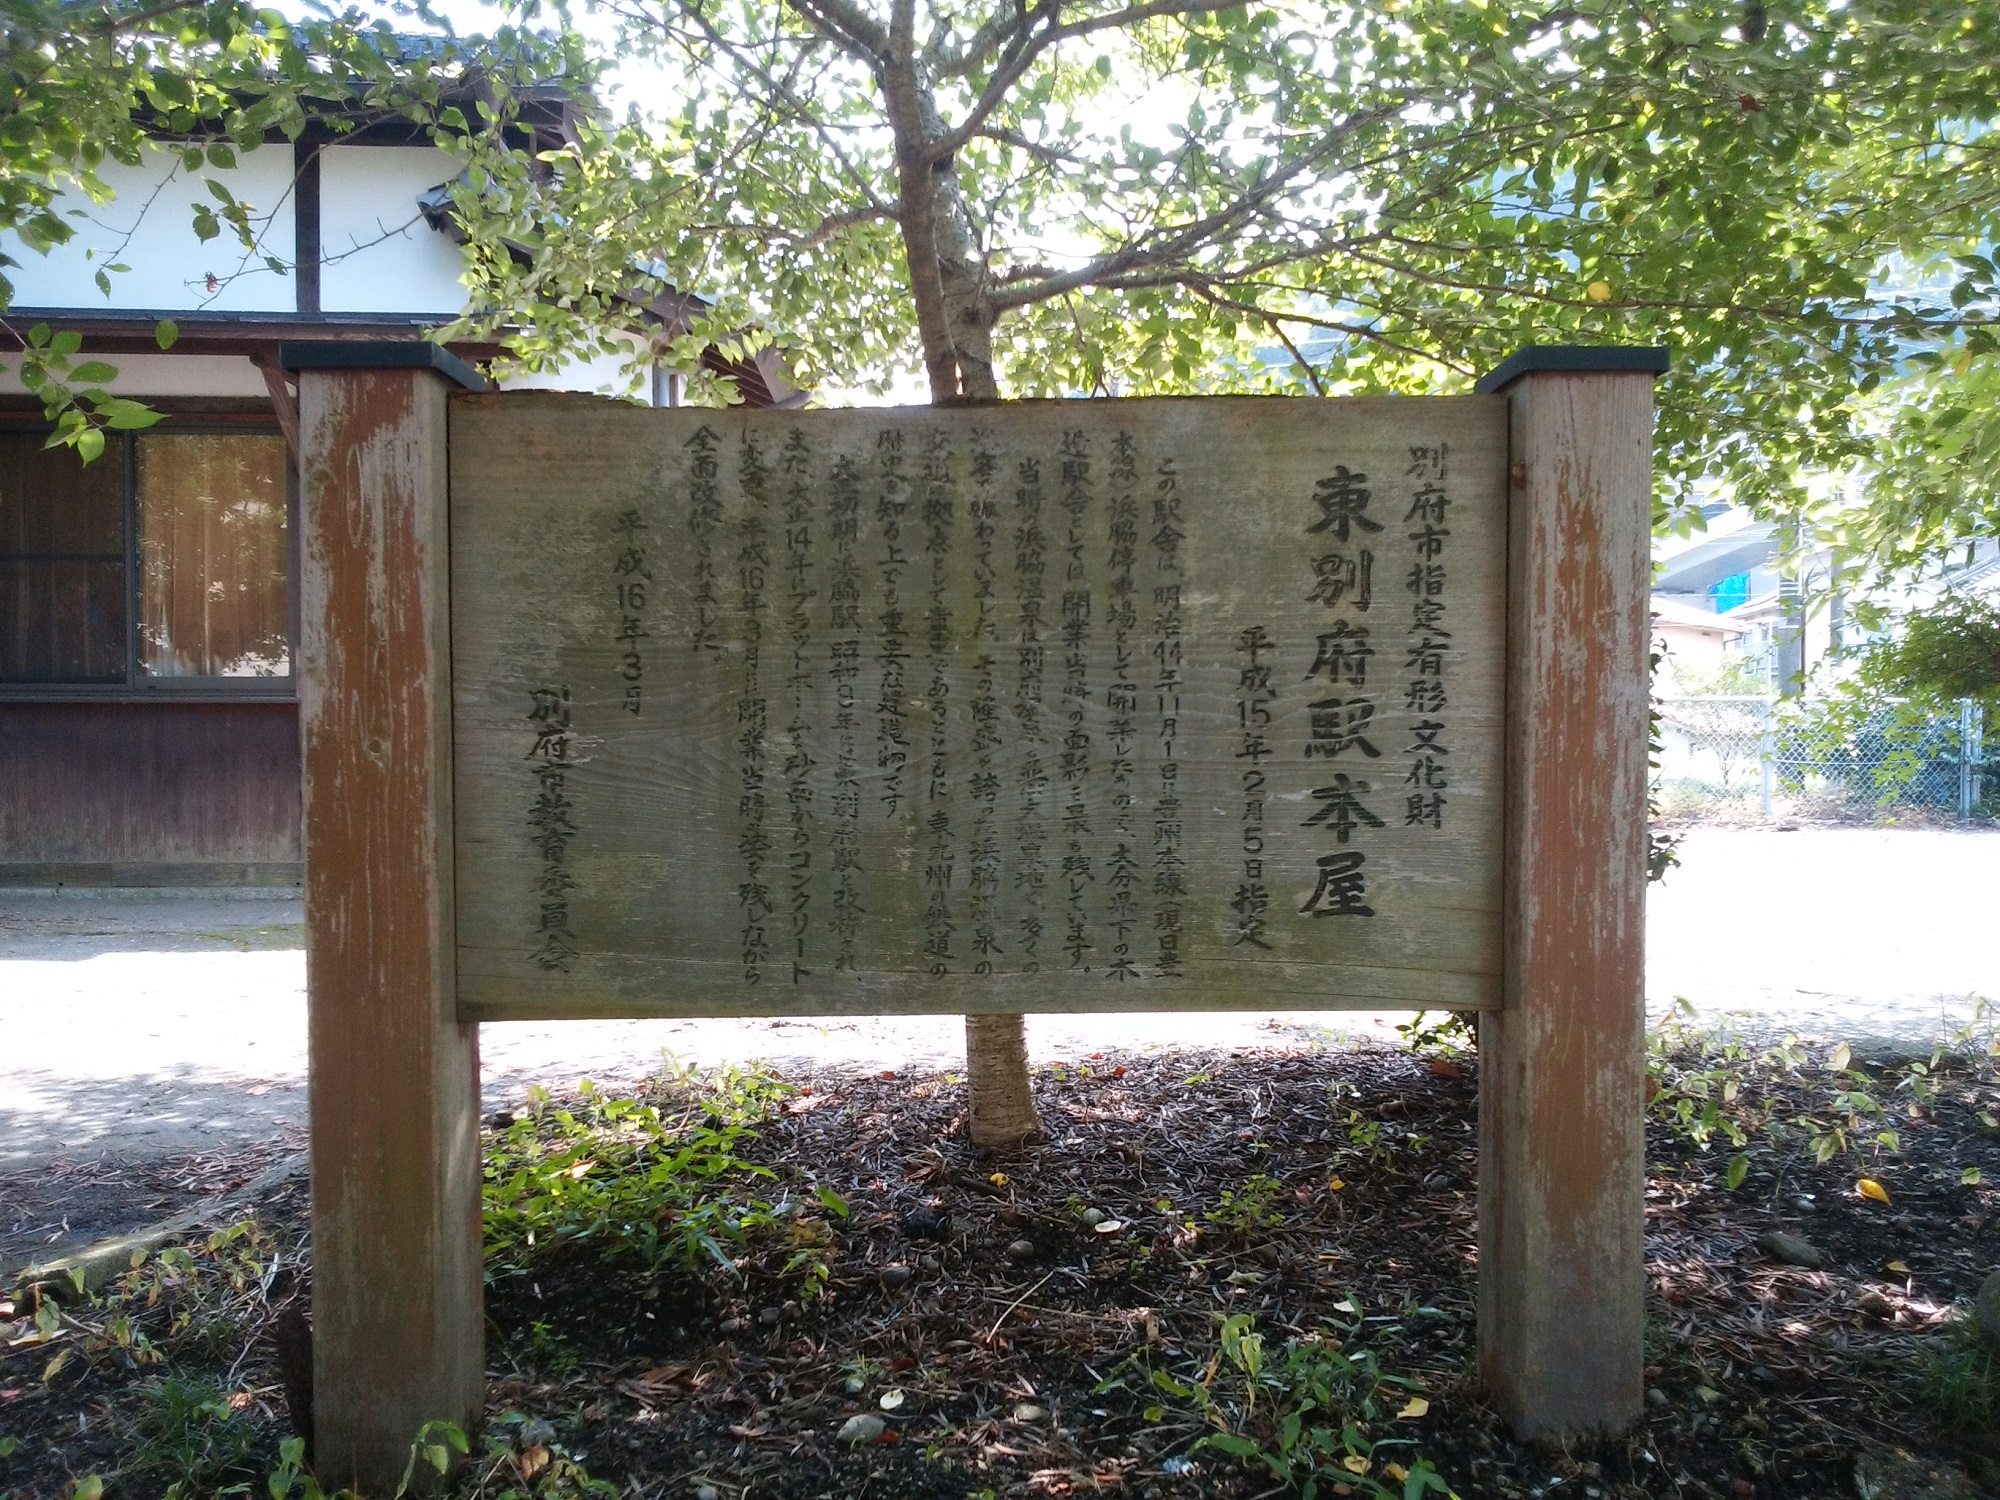 別府市指定有形文化財
東別府駅本屋
平成15年2月5日指定
この駅舎は、明治44年11月1日に豊州本線(現日豊
本線)浜脇停車場として開業したもので、大分県下の木
造駅舎としては開業当時の面影を最も残しています。
当時の浜脇温泉は別府温泉と並ぶ大温泉地で、多くの
浴客で賑わっていました。その隆盛を誇った浜脇温泉の
交通の拠点として貴重であるとともに、東九州の鉄道の
歴史を知る上でも重要な建造物です
大正初期に浜脇駅、昭和9年には東別府駅と改称され、
また、大正14年にプラットホームを砂面からコンクリート
に変え、平成16年3月には開業当時の姿を残しながら
全面改修されました。
平成16年3月
別府市教育委員会